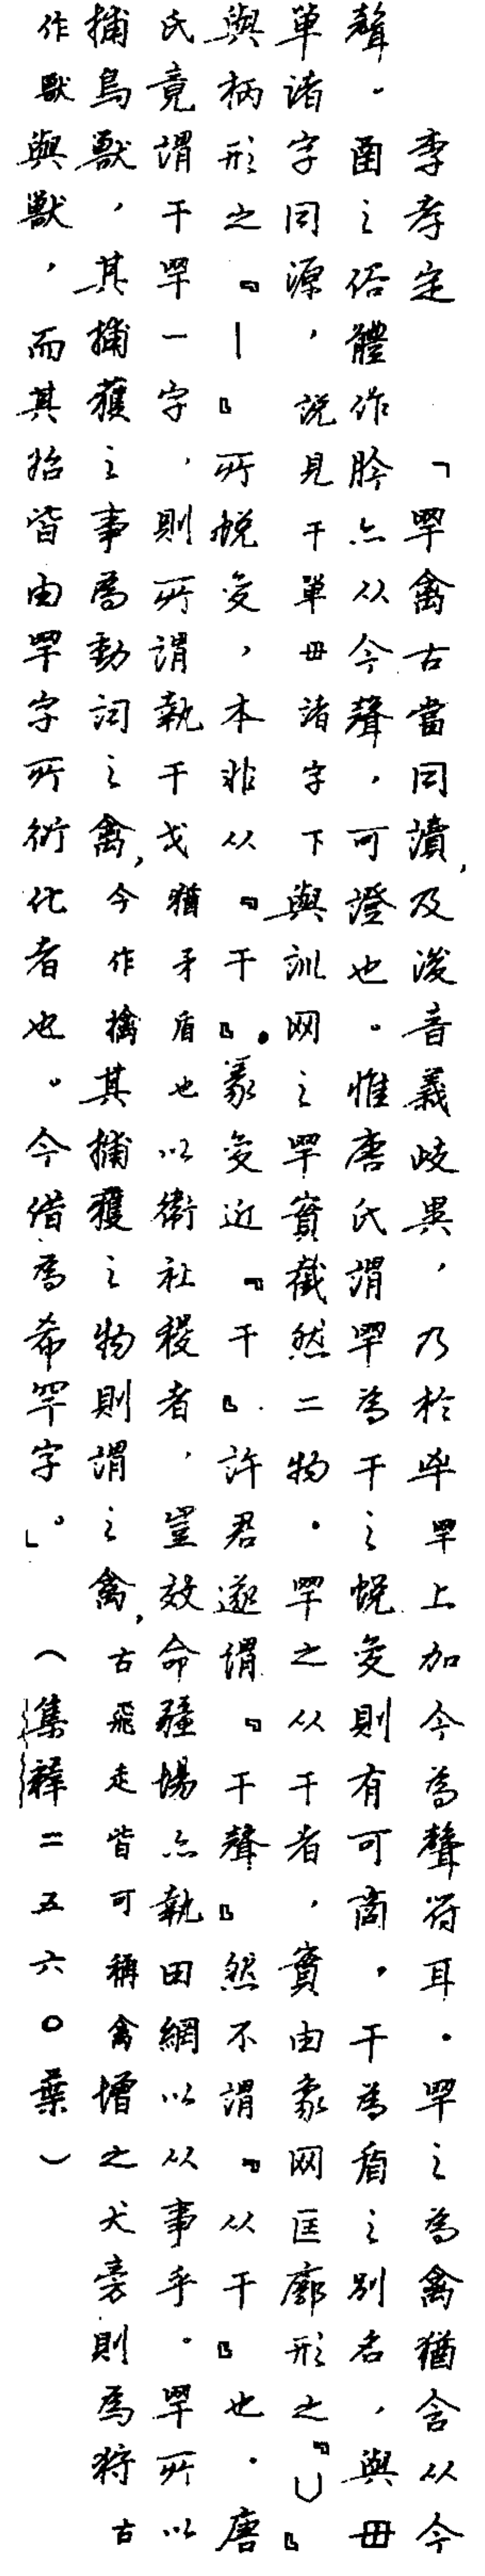 李孝定　「罕禽古當同讀，及後音義歧異，乃於𠦒罕上加今為聲符耳。罕之為禽猶含从今
聲。圅之俗體作肣亦从今聲，可證也。惟唐氏謂罕為干之蛻變則有可商，干為盾之別名，與毌
單諸字同源，說見干單毌諸字下與訓网之罕實截然二物。罕之从干者，實由象网匡廓形之『凵』
與柄形之『丨』所蛻變，本非从『干』。篆變近『干』許君遂謂『干聲』然不謂『从干』也。唐
氏竟謂干罕一字，則所謂執干戈猶矛盾也以衛社稷者，豈效命疆場亦執田網以从事乎。罕所以
捕鳥獸，其捕獲之事為動詞之禽，今作擒其捕獲之物則謂之禽，古飛走皆可稱禽增之犬旁則為狩古
作獸與獸，而其始皆由罕字所衍化者也。今借為希罕字。」　（集釋二五六〇葉）